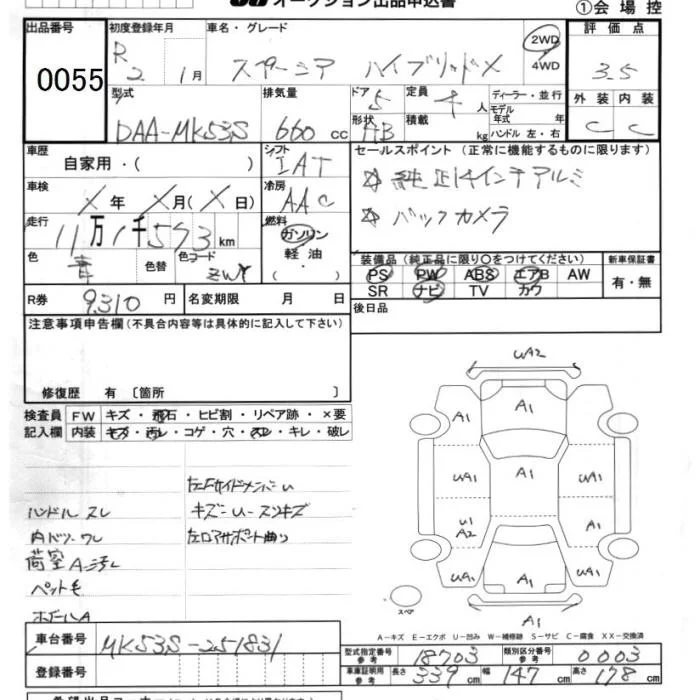 オークション出品申込書
①会場控
出品番号 0055
初度登録年月 R2 1月
車名・グレード スペーシア ハイブリッドX
2WD
4WD
評価点 3.5
型式 DAA-MK53S
排気量 660 cc
ドア 5
形状 HB
定員 4人
積載 kg
ディーラー・並行
モデル年式 年式
ハンドル 左・右
外装 C
内装 C
車歴 自家用・( )
シフト IAT
冷房 AAC
セールスポイント(正常に機能するものに限ります)
☆ 純正14インチアルミ
☆ バックカメラ
車検 X年 X月(X日)
走行 11万1千573km
燃料 ガソリン
軽油
・( )
色 青
色替
色コード ZWY
装備品(純正品に限り○をつけてください)
PS PW ABS エアB AW
SR ナビ TV カワ
新車保証書
有・無
R券 9,310円
名変期限 月 日
後日品
注意事項申告欄(不具合内容等は具体的に記入して下さい)
修復歴 有〔箇所 〕
検査員記入欄
FW キズ・飛石・ヒビ割・リペア跡・×要
内装 キズ・汚レ・コゲ・穴・スレ・キレ・破レ
ハンドル スレ
内ドツーワレ
荷室A汚レ
ペット毛
ホイールA
左Fサイドメンバーu
キズ=u-スンキズ
左ロアサポート曲り
UA2
A1 A1 A1
UA1 A1 UA1
U1
A2 A1
UA1 A1 UA1
A1
スペア
A-キズ E-エクボ U-凹み W-補修跡 S-サビ C-腐食 XX-交換済
車台番号 MK53S-251831
登録番号
型式指定番号 参考 18703
類別区分番号 参考 0003
車庫証明用 参考 長さ 339cm 幅 147cm 高さ 178cm